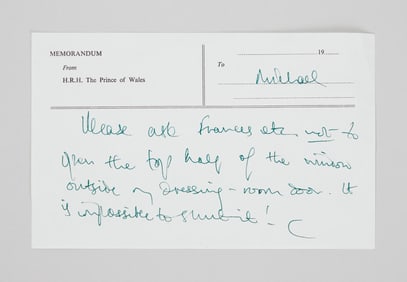 MEMORANDUM
From
H.R.H. The Prince of Wales
19
To
Michael
Please ask Frances etc. not to
open the top half of the window
outside my dressing-room door. It
is impossible to shut it! - C